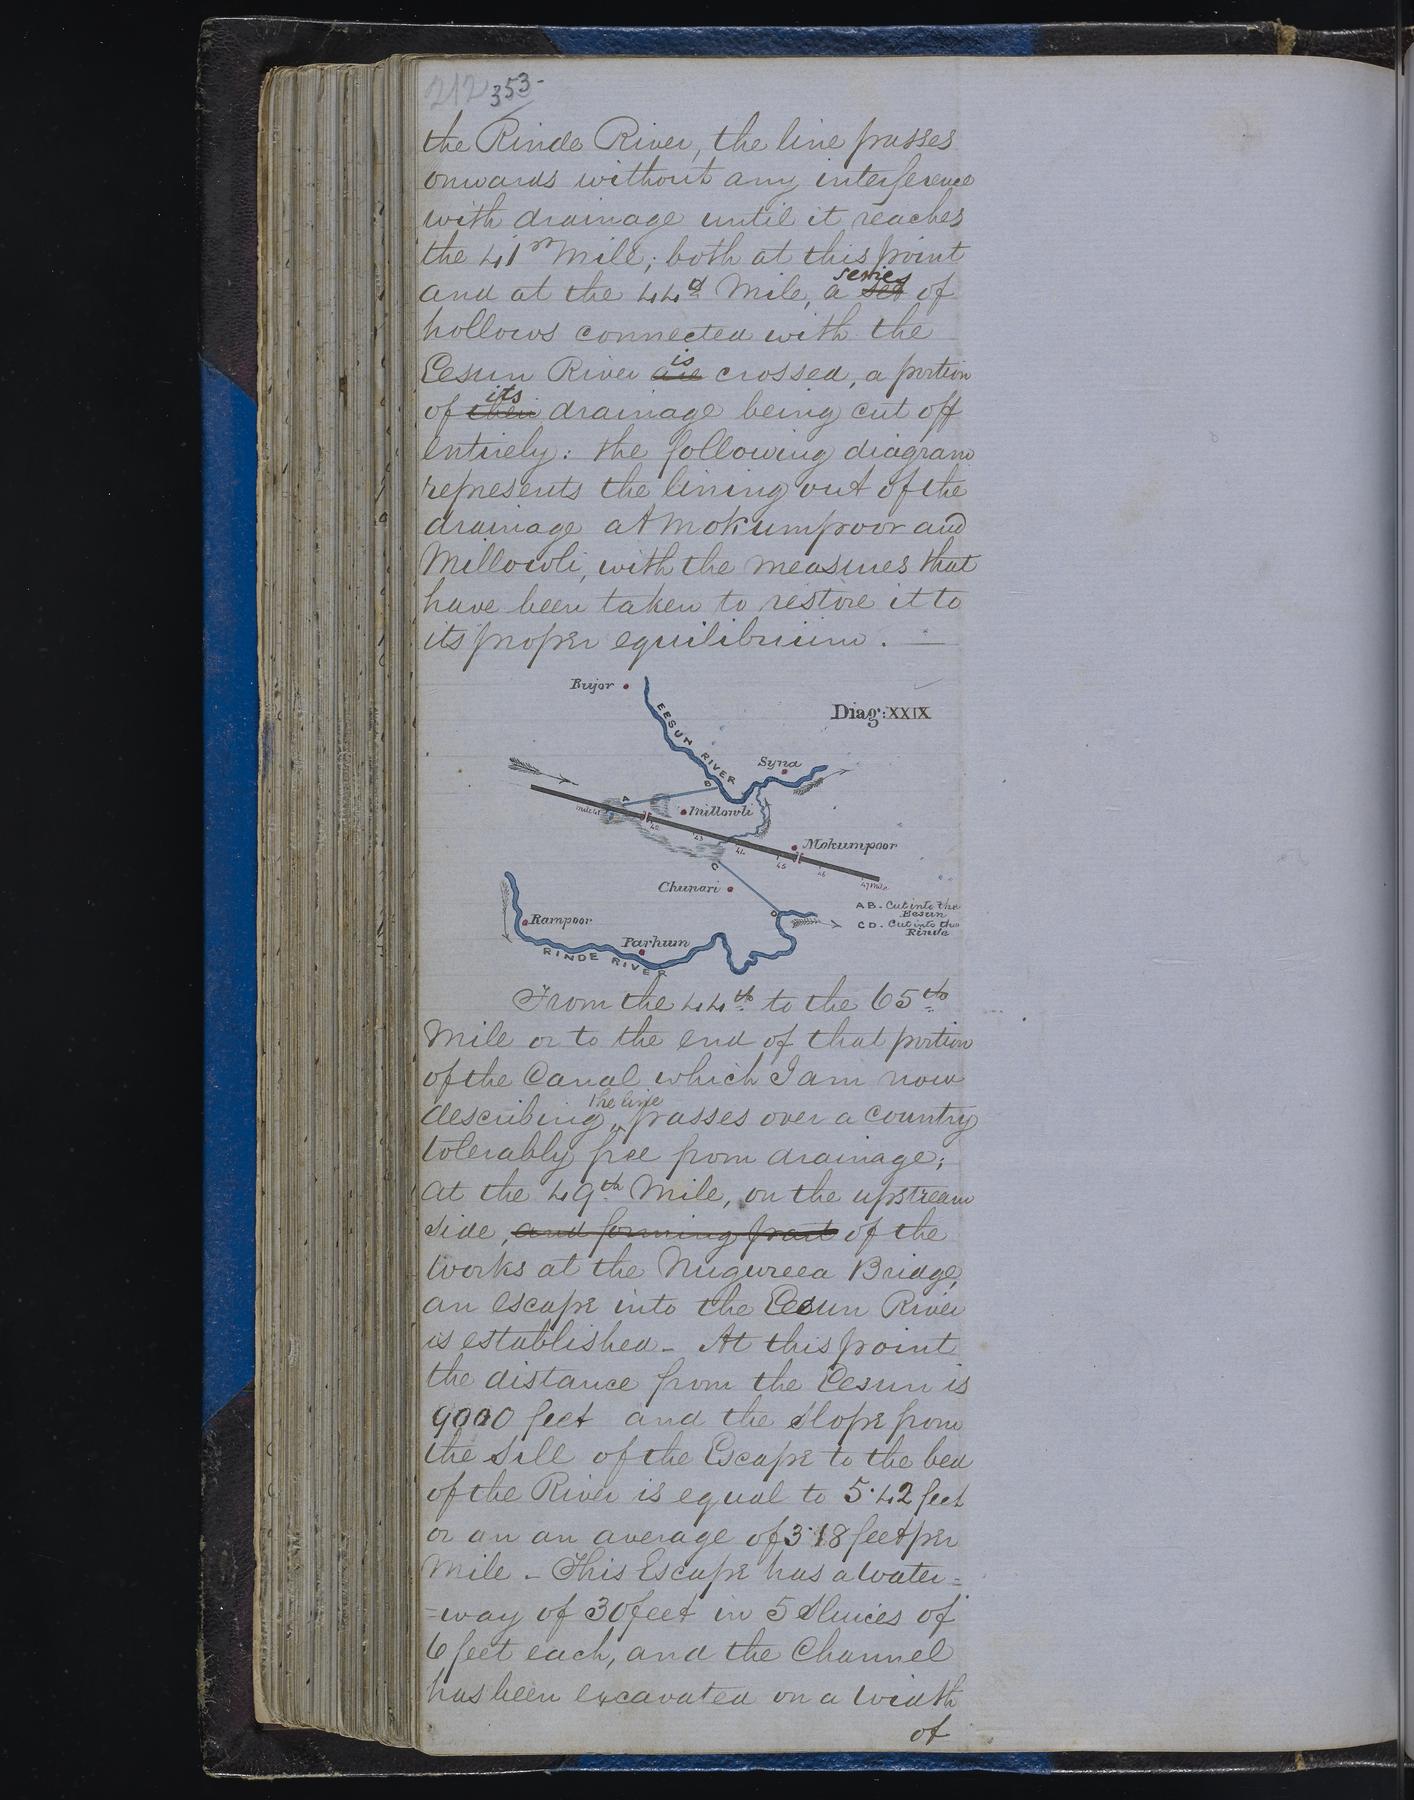 212 353-
the Rinde River, the line passes
onwards without any interference
with drainage until it reaches
the 41st Mile; both at this point
series
and at the 44th Mile, a set of
hollows connected with the
is
Eesun River are crossed, a portion
its
of their drainage being cut off
entirely: the following diagram
represents the lining out of the
drainage at Mokumpoor and
Millowli, with the measures that
have been taken to restore it to
its proper equilibrium. —
Bujor
Diag: XXIX
EESUN RIVER
Syna
B
A
Mile 41
Millowli
42
43
44
Mokumpoor
45
46
47 Mile
C
Chunari
AB. Cut into the
Eesun
D
CD. Cut into the
Rinde
Rampoor
Parhum
RINDE RIVER
From the 44th to the 65th
Mile or to the end of that portion
of the Canal which I am now
the line
describing, passes over a country
tolerably free from drainage;
at the 49th Mile, on the upstream
side, and forming part of the
works at the Nugureea Bridge,
an escape into the Eesun River
is established - At this point
the distance from the Eesun is
9000 feet and the slope from
the Sill of the Escape to the bed
of the River is equal to 5.42 feet
or an an average of 3.18 feet per
Mile - This Escape has a water=
=way of 30 feet in 5 Sluices of
6 feet each, and the Channel
has been excavated on a width
of